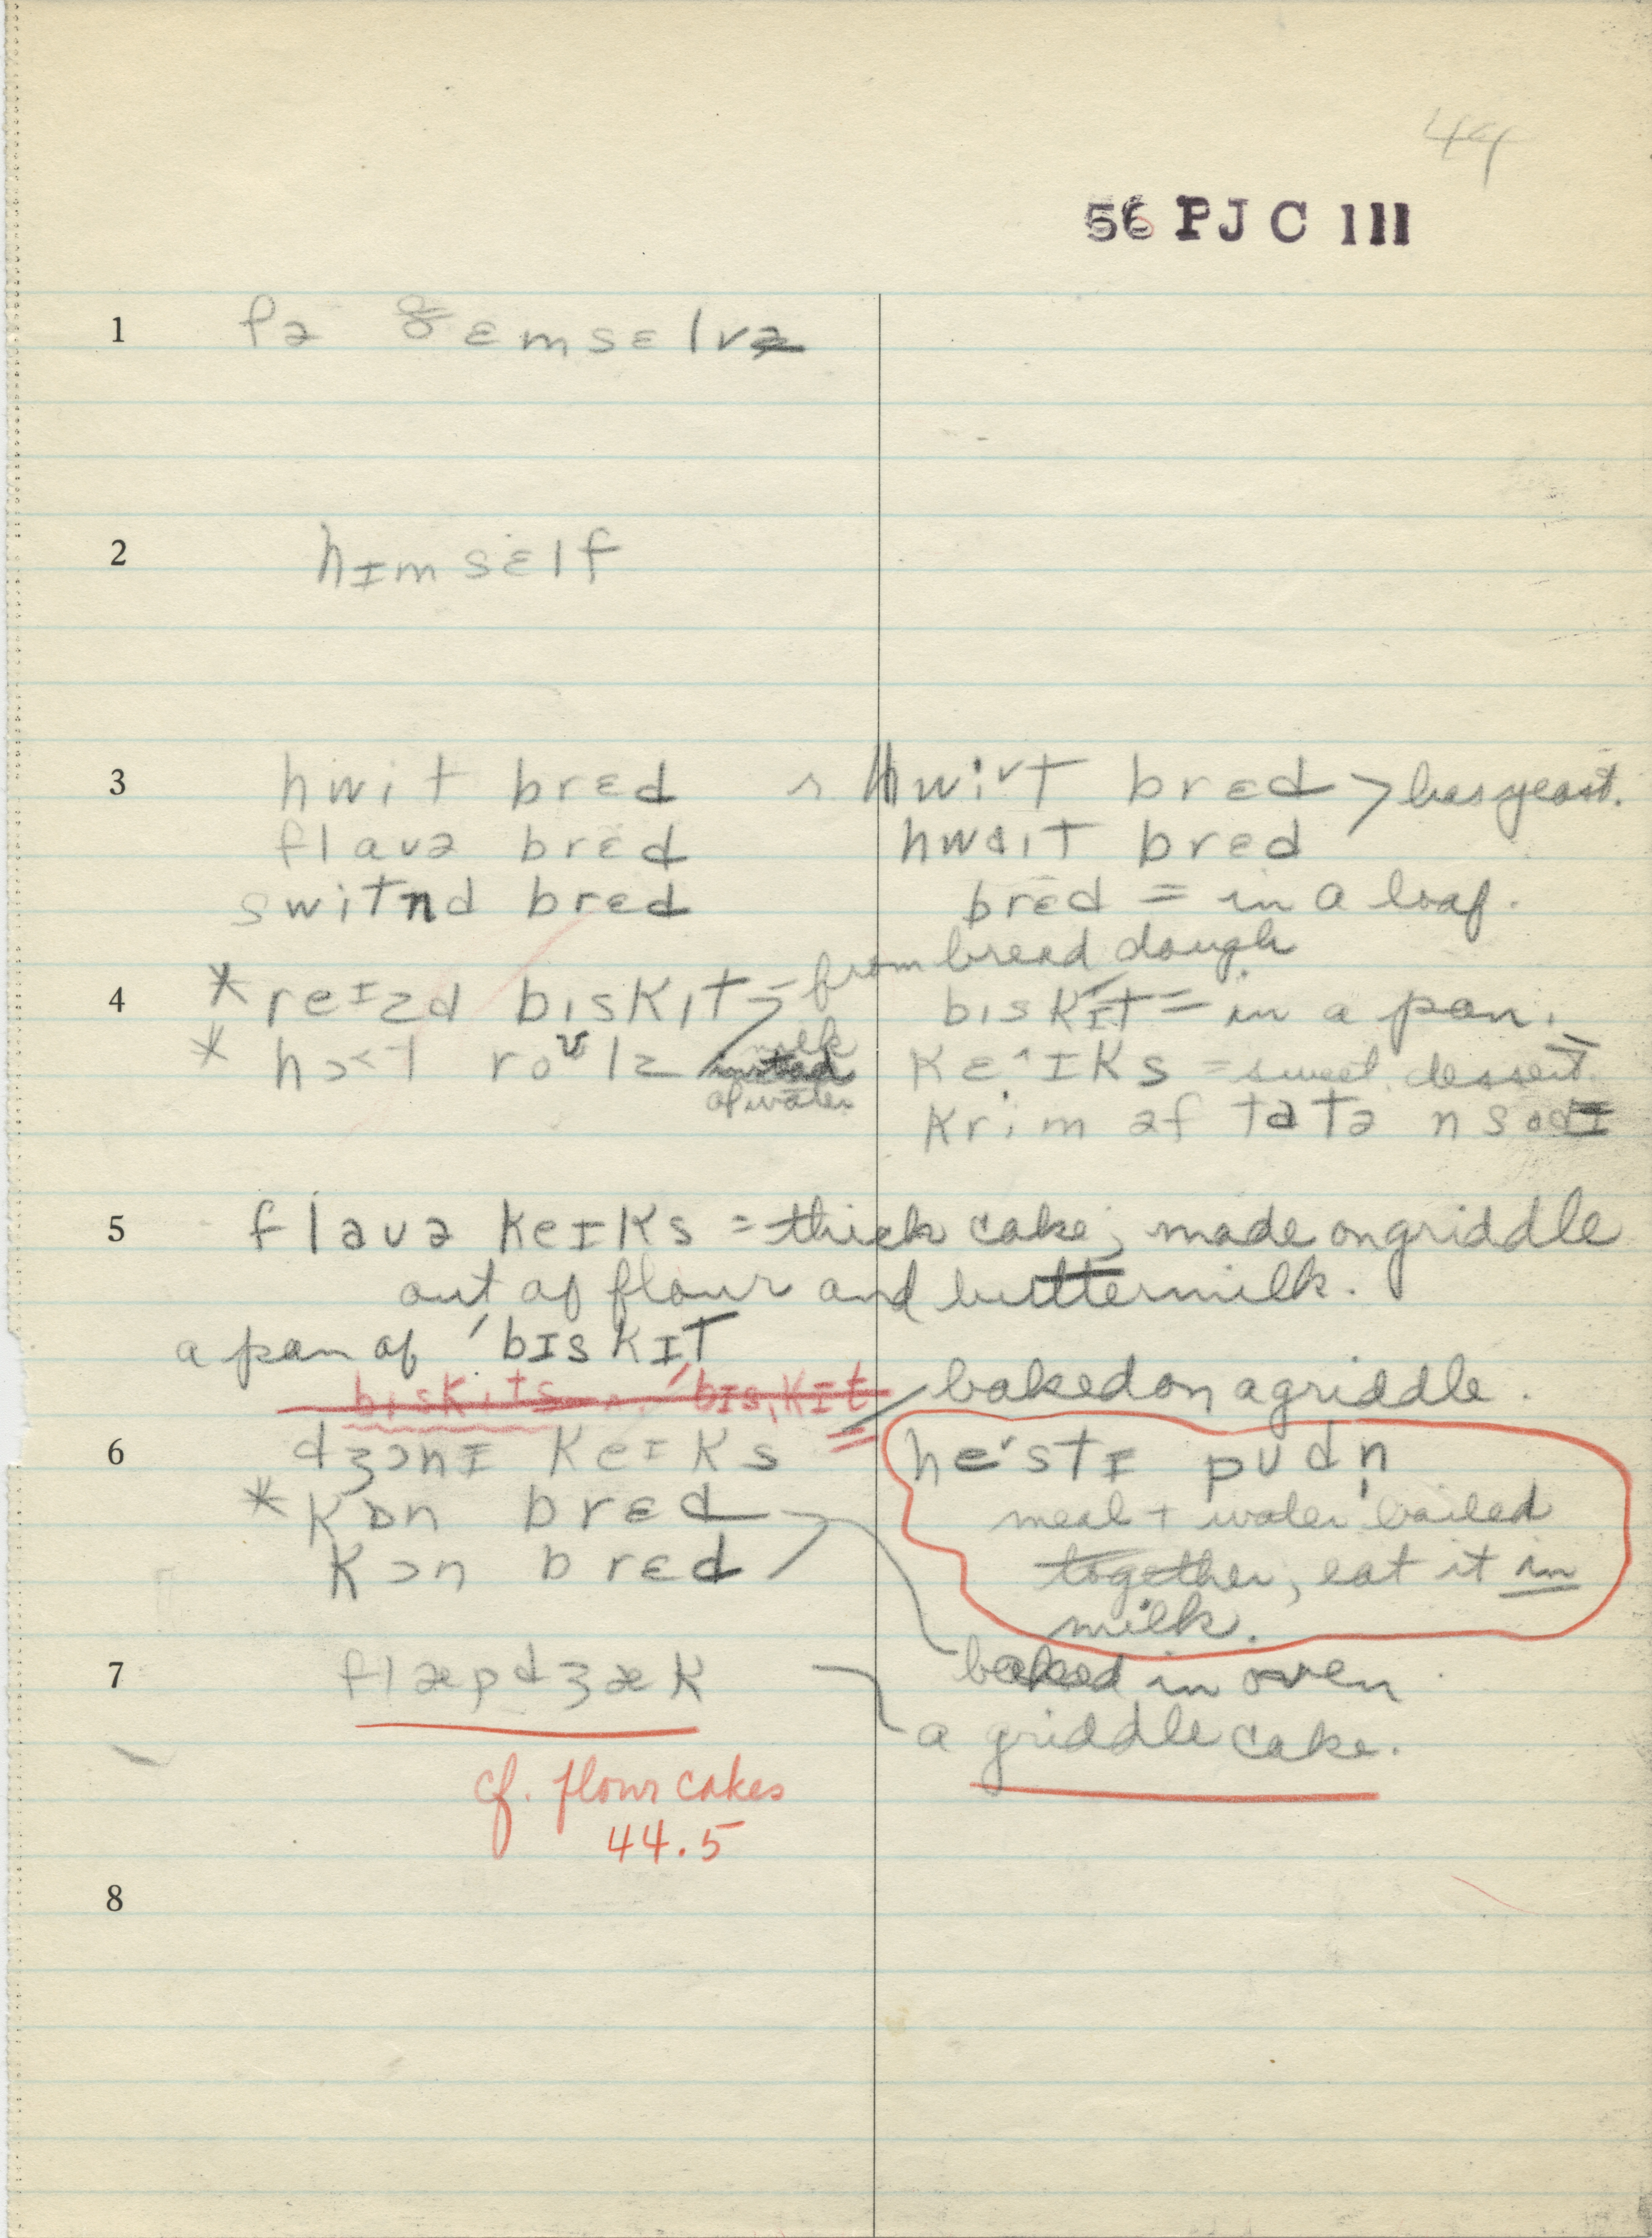 44
56 PJC 111
1 fə ðɛmsɛlvz
2 hɪmsɛlf
3 hwit brɛd ~ hwiˑᵛt brɛd > has yeast.
flavə brɛd hwait brɛd
switnd brɛd brɛd = in a loaf.
from bread dough
4 * reɪzd bɪskɪt bɪskɪt = in a pan.
* hɔ˂t roᵛlz milk instead of water keˑ^ɪks = sweet dessert.
krim əf tatə n sodɪ
5 flauə keɪks = thick cake; made on griddle
out of flour and buttermilk.
a pan of ˈbɪskɪt
biskits ~ ˈbɪskɪt baked on a griddle.
6 dʒɔnɪ keɪks heˑstɪ pudn̩
* kɒn brɛd meal + water boiled
kɔn brɛd together, eat it in
milk.
7 flæpdʒæk baked in oven
a griddle cake.
cf. flour cakes
44.5
8